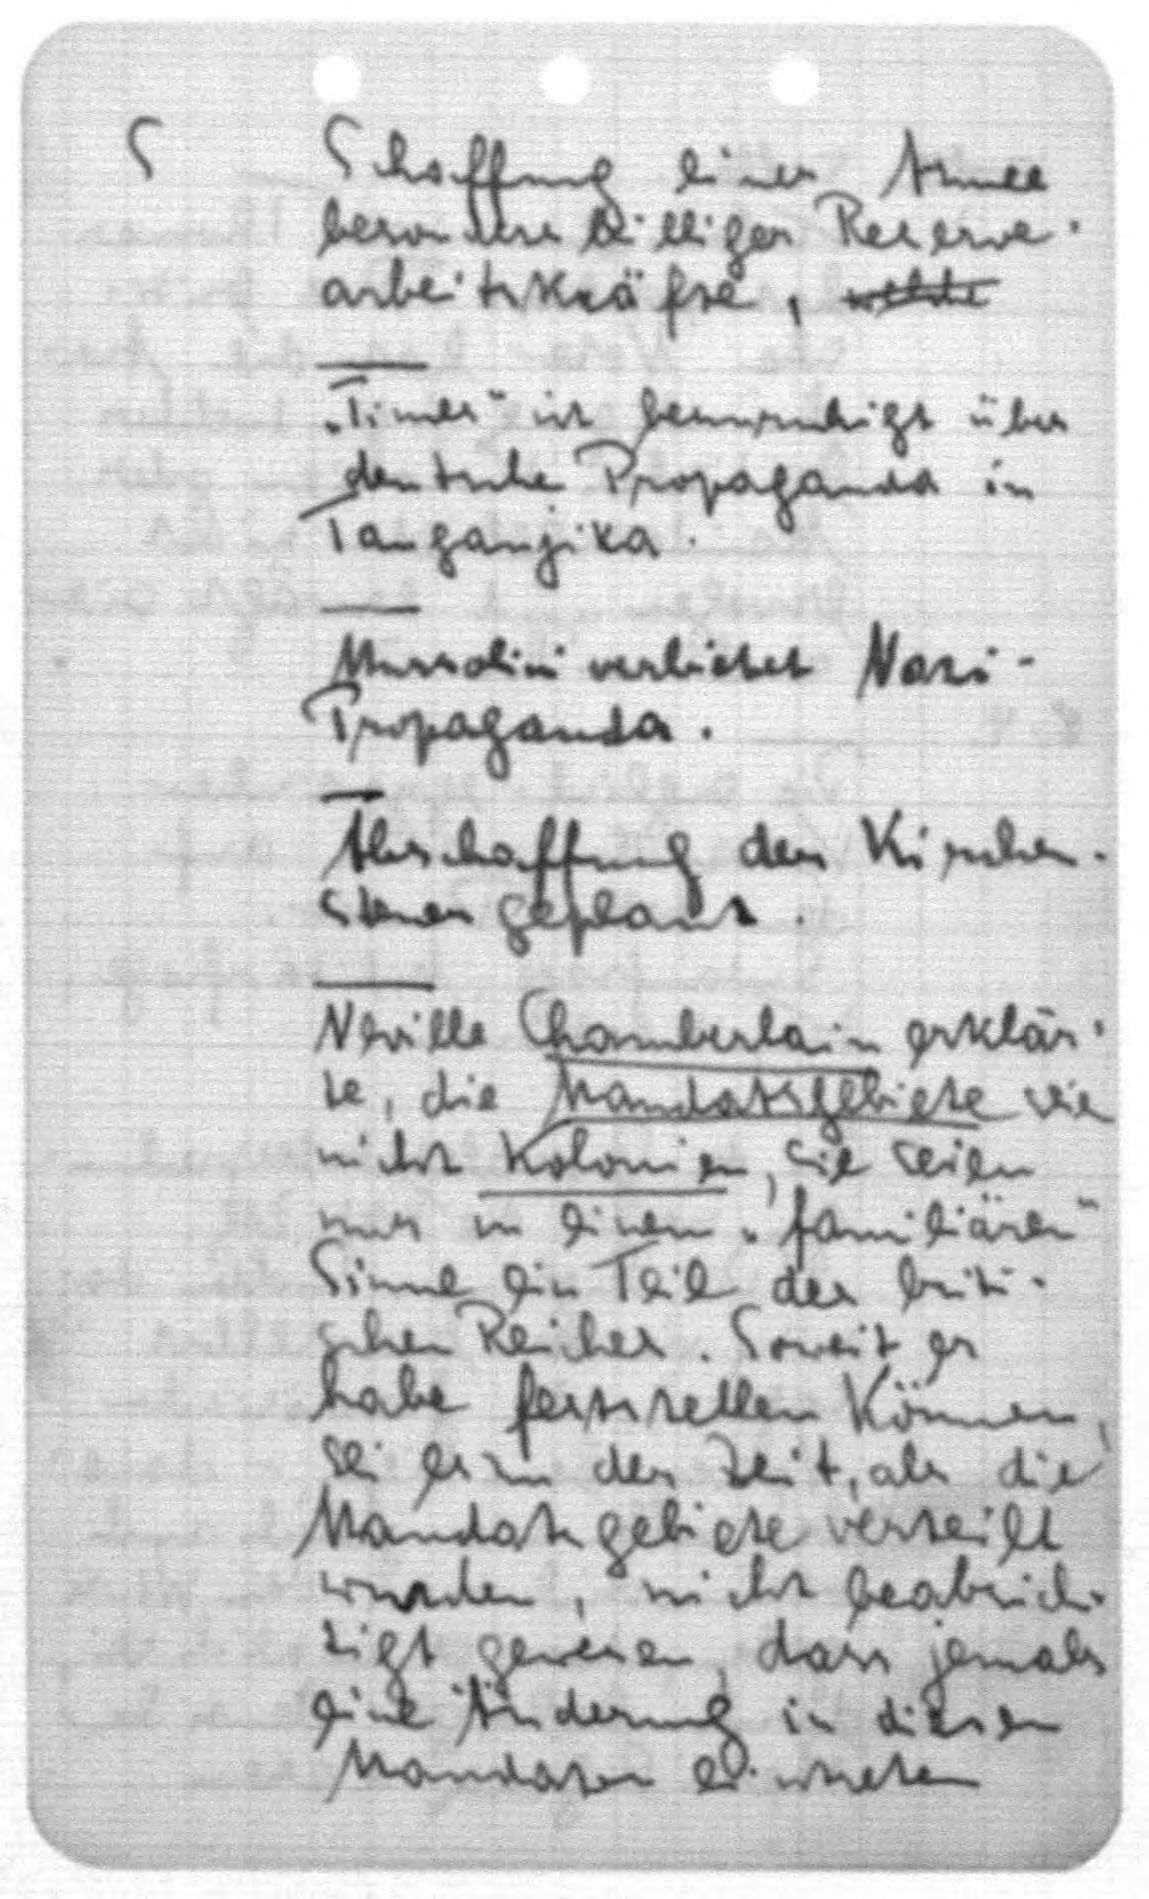 S Schaffung einer Armee
besonders billiger Reserve-
arbeitskräfte, welche
„Times" ist beunruhigt über
deutsche Propaganda in
Tanganjika.
Mussolini verbietet Nazi-
Propaganda.
Abschaffung der Kirchen-
steuer geplant.
Neville Chamberlain erklär-
te, die Mandatsgebiete seien
nicht Kolonien, sie seien
nur in einem „familiären"
Sinne ein Teil des briti-
schen Reiches. Soweit er
habe feststellen können,
sei es zu der Zeit, als die
Mandatsgebiete verteilt
wurden, nicht beabsich-
tigt gewesen, dass jemals
eine Änderung in diesen
Mandaten eintreten